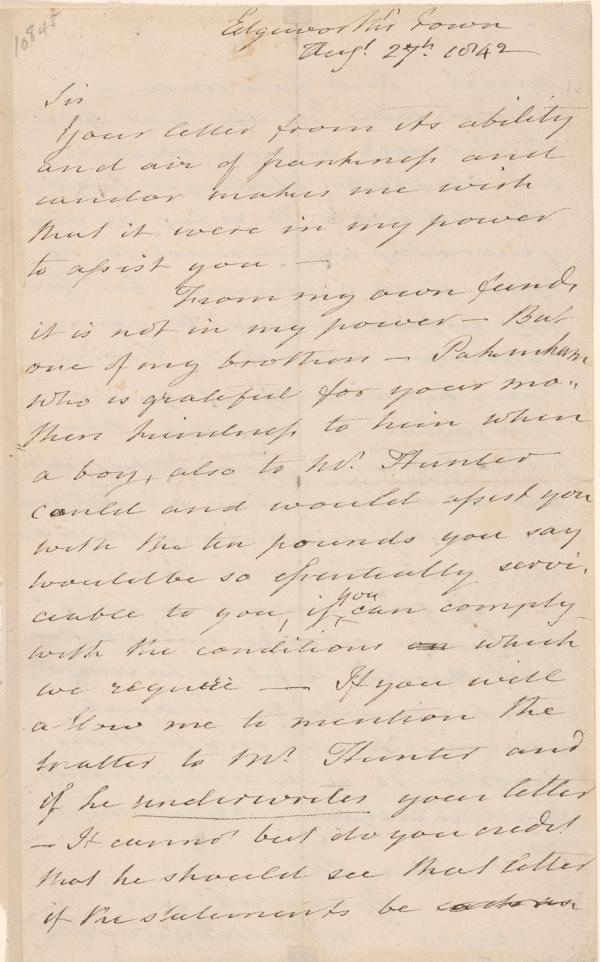 10845
Edgeworth's Town
Augt. 27th. 1842
Sir
Your letter from its ability
and air of frankness and
candor makes me wish
that it were in my power
to assist you —
From my own funds
it is not in my power — But
one of my brothers — Pakenham
who is grateful for your mo-
thers kindness to him when
a boy, also to Mr. Hunter
could and would assist you
with the ten pounds you say
would be so essentially servi-
ceable to you, if you can comply
with the conditions on which
we require — If you will
allow me to mention the
matter to Mr. Hunter and
if he underwrites your letter
— It cannot but do you credit
that he should see that letter
if the statements be